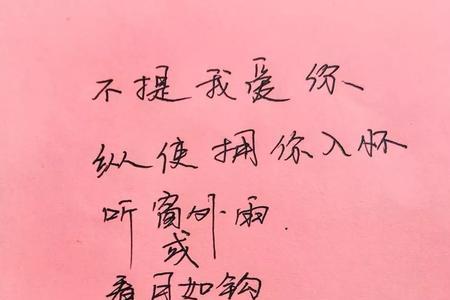 不提我爱你、
纵使拥你入怀
听窗外雨.
或
看月如钩